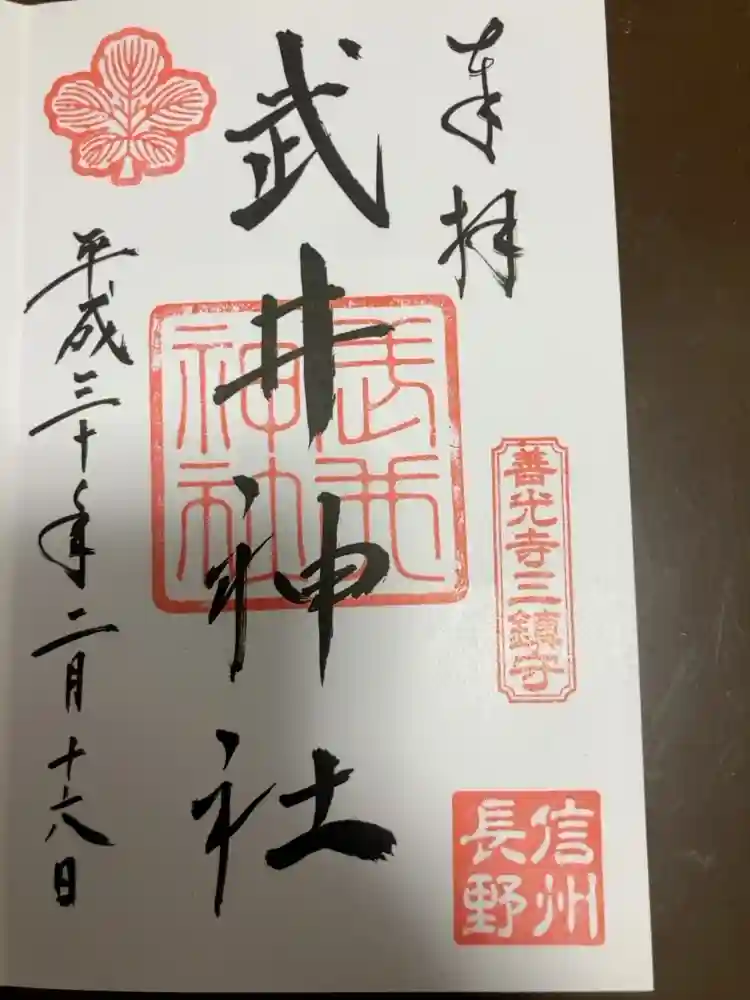 奉拝
善光寺三鎮守
信州
長野
武井神社
武井
神社
平成三十年二月十六日